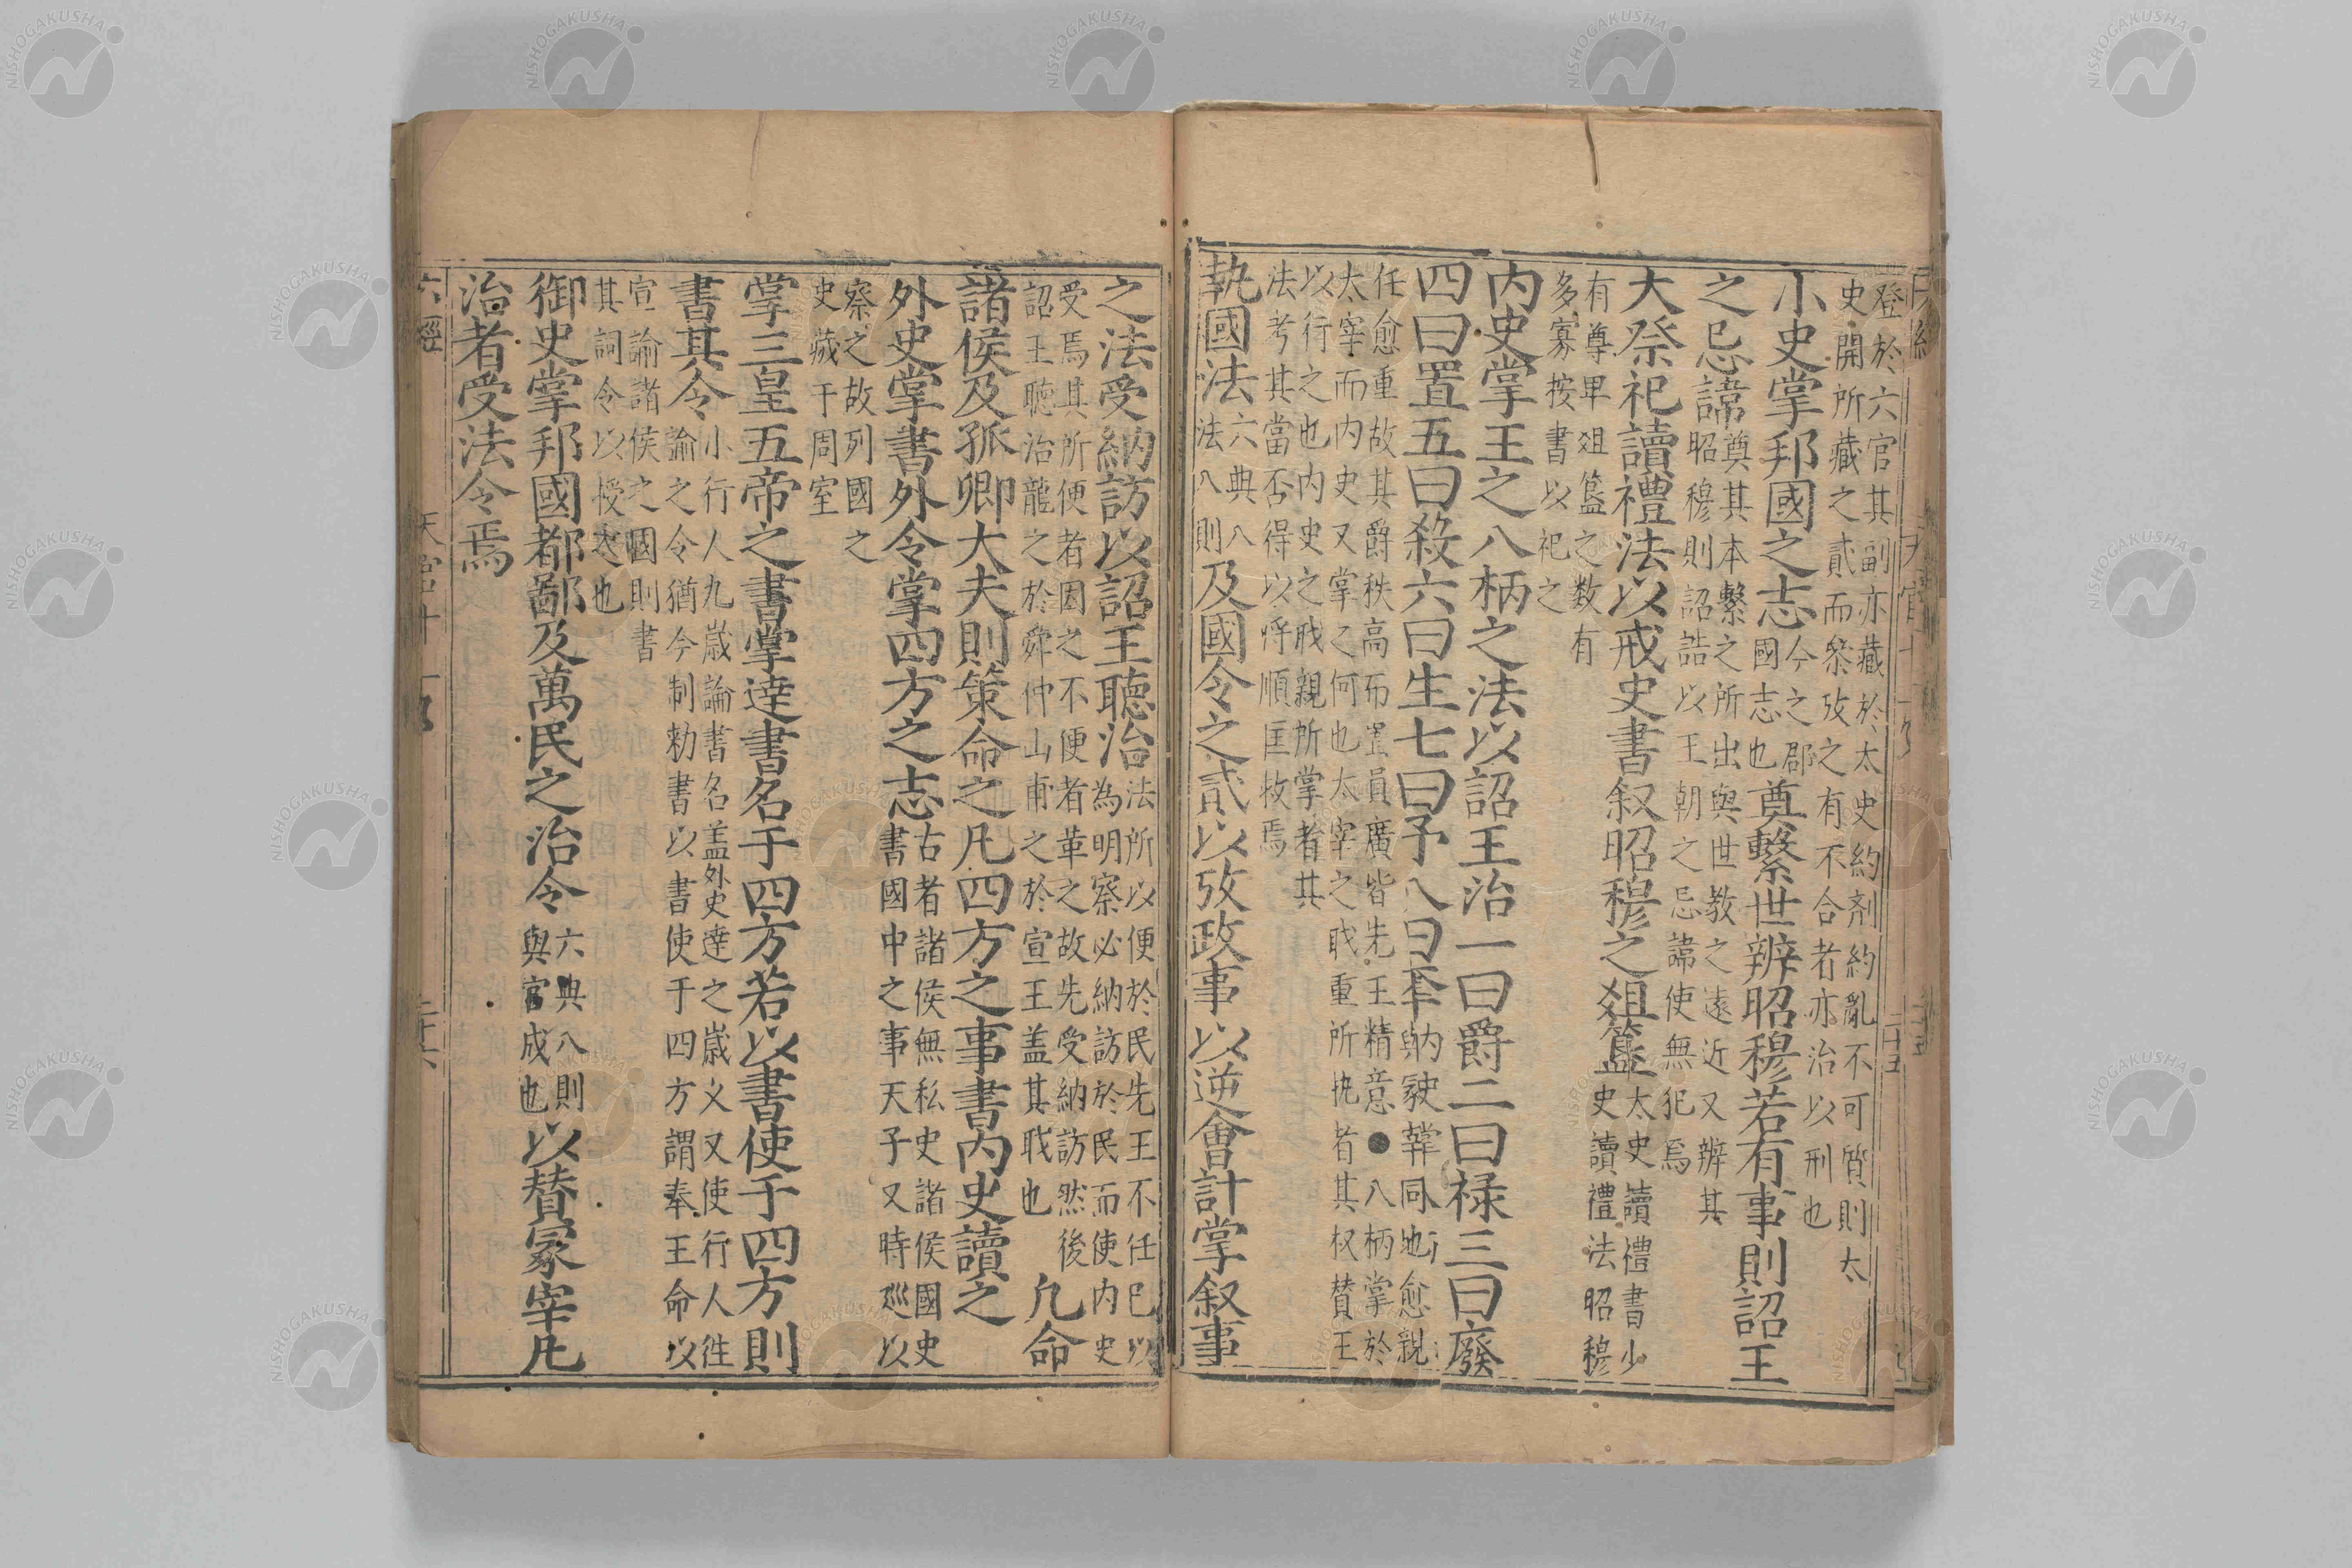 登於六官其副亦藏於太史約剤約亂不可質則太
史開所藏之貳而叅攷之有不合者亦治以刑也
小史掌邦國之志今之郡國志也奠繫世辨昭穆若有事則詔王
之忌諱奠其本繫之所出與世教之遠近又辨其昭穆則詔誥以王朝之忌諱使無犯焉
大祭祀讀禮法以戒史書叙昭穆之俎簋太史讀禮書少史讀禮法昭穆
有尊卑俎簋之数有
多寡按書以祀之
内史掌王之八柄之法以詔王治一曰爵二曰禄三曰廢
四曰置五曰殺六曰生七曰予八曰奪
任愈重故其爵秩高而置員廣皆先王精意●八柄掌於
太宰而内史又掌之何也太宰之戝重所执者其权賛王
以行之也内史之戝親所掌者其
法考其當否得以将順匡救焉
執國法六典八法八則及國令之貳以攷政事以逆會計掌叙事
之法受納訪以詔王聽治法所以便於民先王不任已以為明察必納訪於民而使内史
受焉其所便者因之不便者革之故先受納訪然後
詔王聽治龍之於舜仲山甫之於宣王盖其戝也
凡命
諸侯及孤卿大夫則策命之凡四方之事書内史讀之
外史掌書外令掌四方之志古者諸侯無私史諸侯國史書國中之事天子又時廵以
察之故列國之
史藏于周室
掌三皇五帝之書掌逹書名于四方若以書使于四方則
書其令小行人九歳論書名盖外史逹之歳又又使行人徃論之令猶今制勑書以書使于四方謂奉王命以
宣論諸侯之國則書
其詞令以授之也
御史掌邦國都鄙及萬民之治令六典八則與官成也以賛冢宰凡
治者受法令焉
六經
天官
二十六